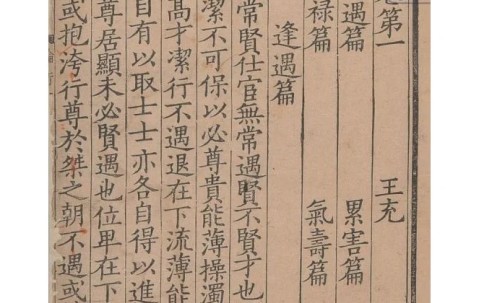 第一 王充
遇篇 累害篇
禄篇 氣壽篇
逢遇篇
常賢仕官無常遇賢不賢才也
潔不可保以必尊貴能薄操濁
高才潔行不遇退在下流薄能
自有以取士士亦各自得以進
尊居顯未必賢遇也位卑在下
或抱洿行尊於桀之朝不遇或